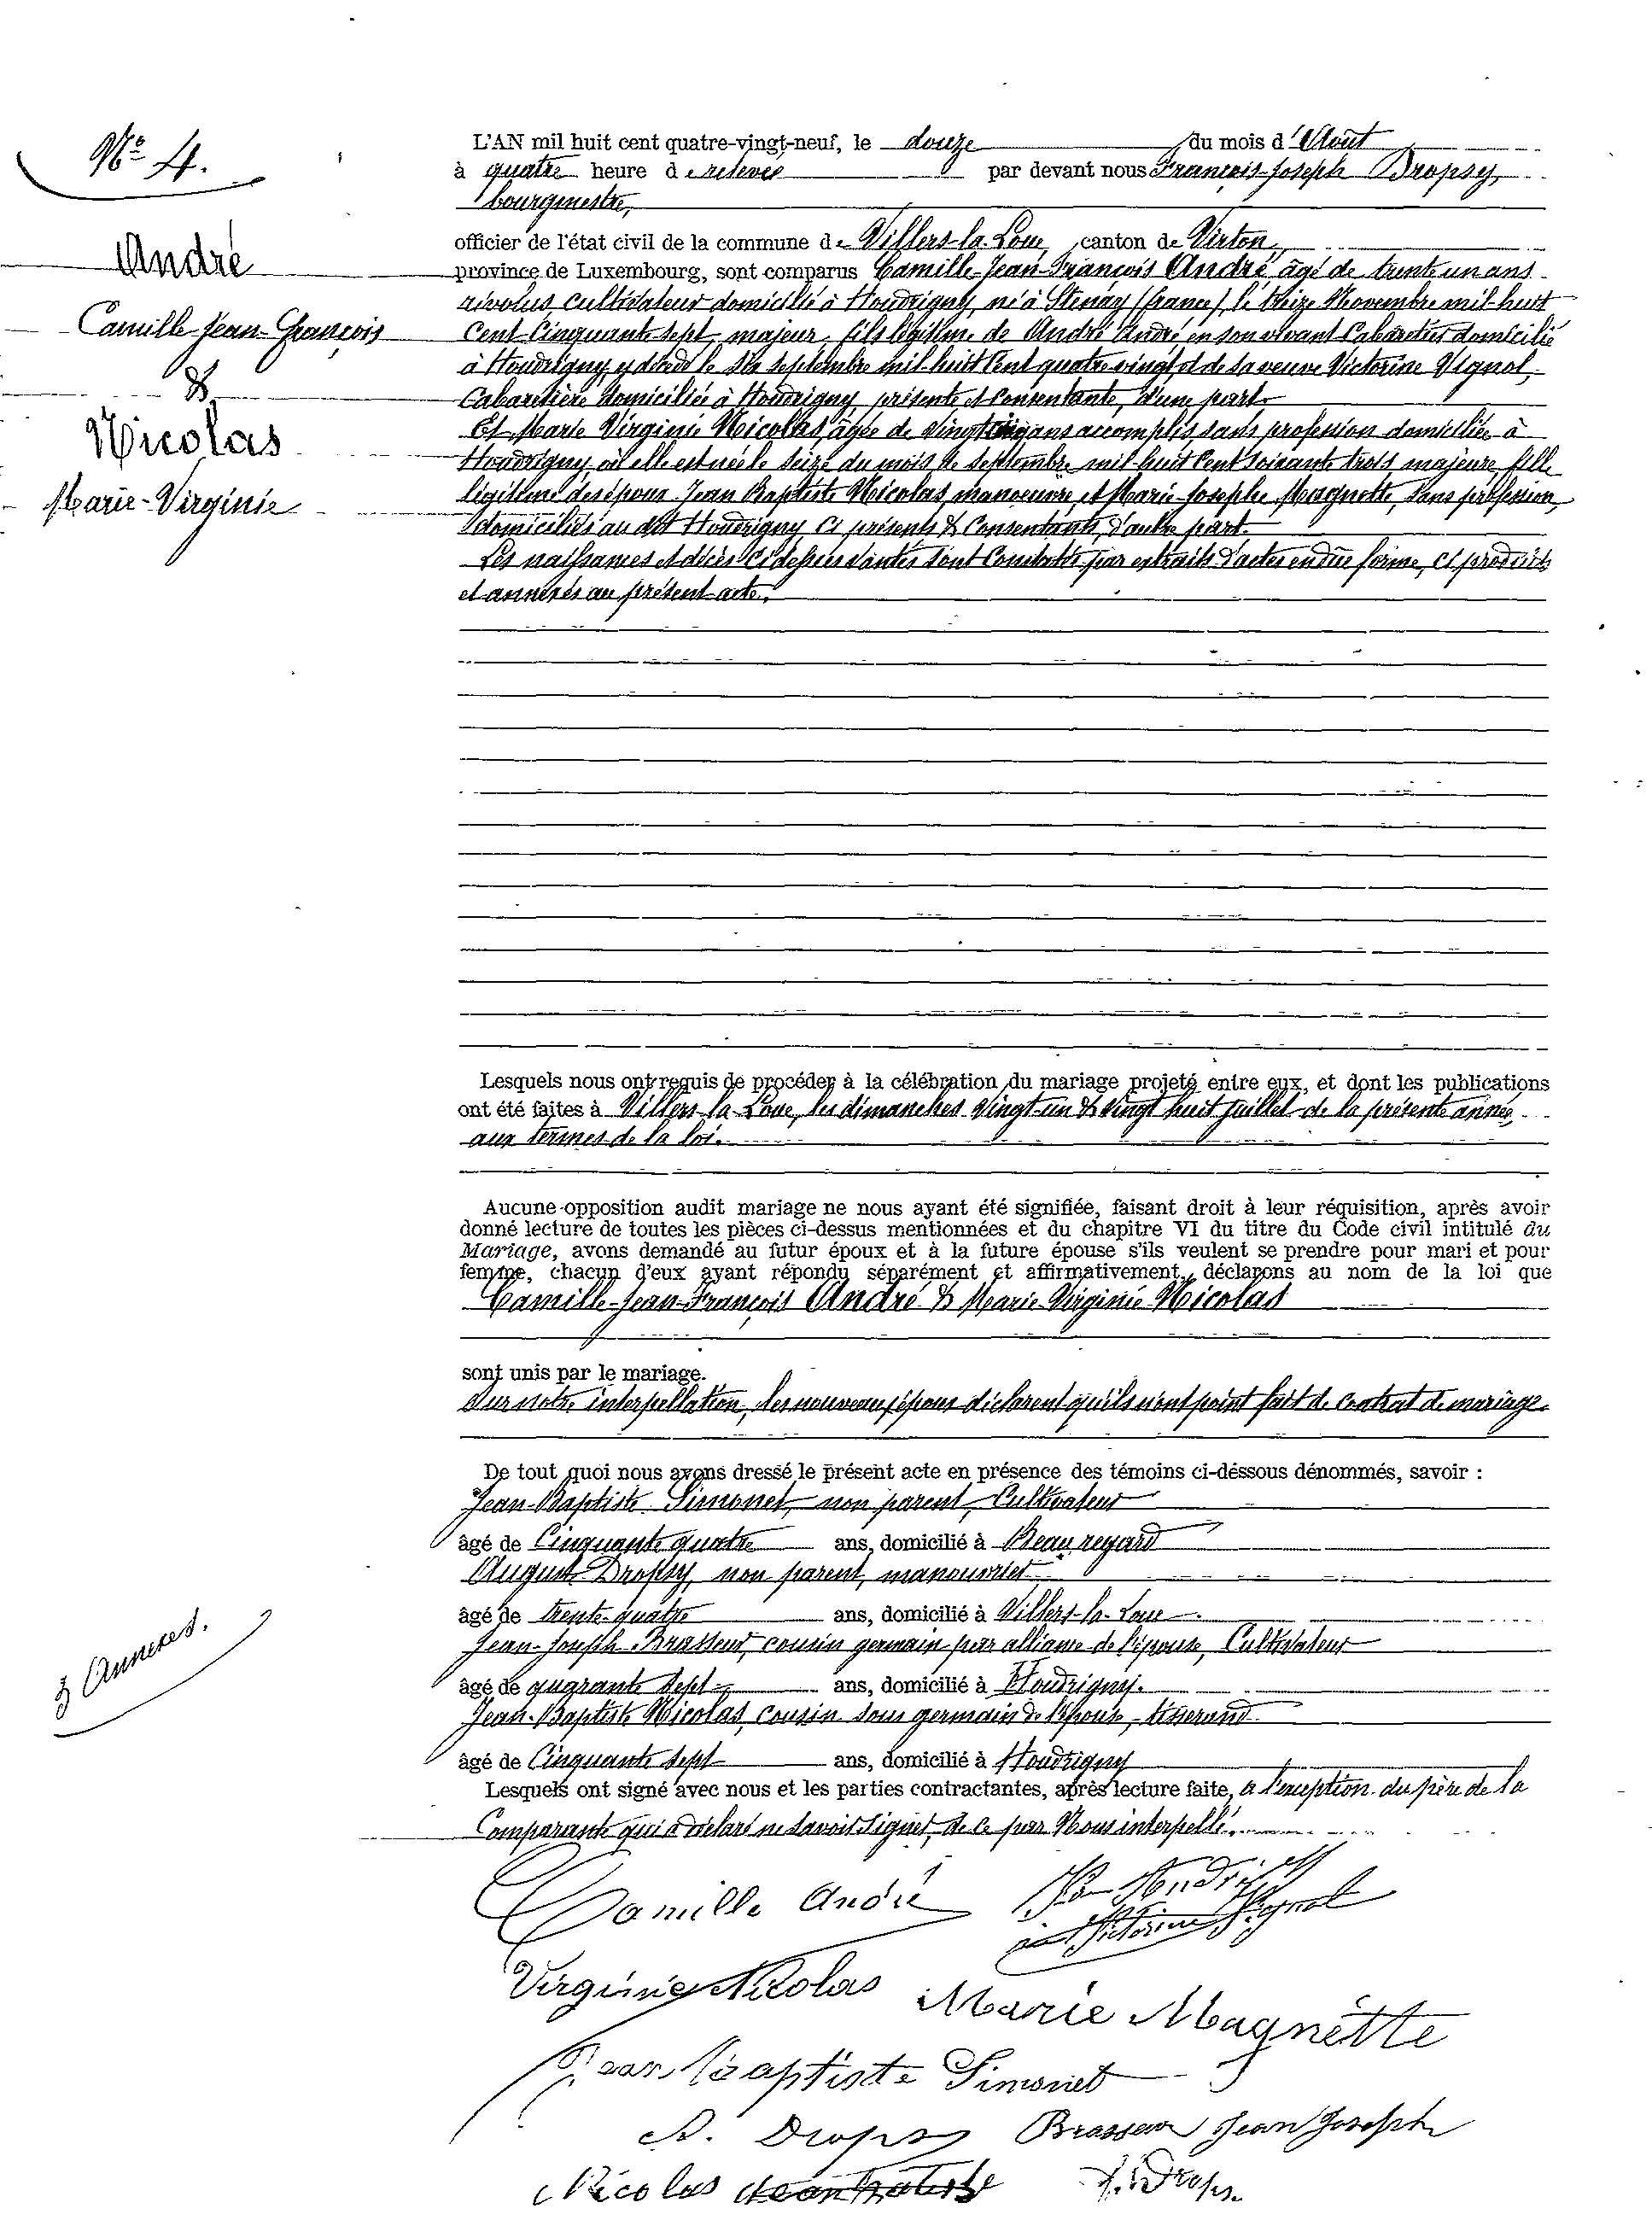 N° 4.
André
Camille Jean-François
&
Nicolas
Marie-Virginie
L'AN mil huit cent quatre-vingt-neuf, le douze du mois d'Août
à quatre heure de relevée par devant nous François-Joseph Dropsy,
bourgmestre,
officier de l'état civil de la commune de Villers-la-Loue, canton de Virton,
province de Luxembourg, sont comparus Camille-Jean-François André, âgé de trente un ans
révolus, cultivateur domicilié à Houdrigny, né à Stenay (france), le treize Novembre mil-huit
Cent Cinquante sept, majeur, fils légitime de André André en son vivant Cabaretier domicilié
à Houdrigny, y décédé le six septembre mil huit Cent quatre vingt, et de sa veuve Victorine Vignol,
Cabaretière domiciliée à Houdrigny, présente et Consentante, d'une part.
Et Marie Virginie Nicolas, âgée de vingt cinq ans accomplis, sans profession domiciliée à
Houdrigny, où elle est née le seize du mois de septembre mil huit Cent soixante trois, majeure, fille
légitime des époux Jean Baptiste Nicolas, manoeuvre, et Marie-Josephe Magnette, sans profession,
domiciliés au dit Houdrigny, ci présents & Consentants, d'autre part.
Les naissances et décès Ci dessus datés sont Constatés par extraits d'actes en due forme, ci produits
et annexés au présent acte.
Lesquels nous ont requis de procéder à la célébration du mariage projeté entre eux, et dont les publications
ont été faites à Villers-la-Loue, les dimanches vingt-un & vingt huit juillet de la présente année,
aux termes de la loi.
Aucune opposition audit mariage ne nous ayant été signifiée, faisant droit à leur réquisition, après avoir
donné lecture de toutes les pièces ci-dessus mentionnées et du chapitre VI du titre du Code civil intitulé du
Mariage, avons demandé au futur époux et à la future épouse s'ils veulent se prendre pour mari et pour
femme, chacun d'eux ayant répondu séparément et affirmativement, déclarons au nom de la loi que
Camille-Jean-François André & Marie-Virginie Nicolas
sont unis par le mariage.
Sur notre interpellation, les nouveaux époux déclarent qu'ils n'ont point fait de contrat de mariage.
De tout quoi nous avons dressé le présent acte en présence des témoins ci-dessous dénommés, savoir :
Jean-Baptiste Simonet, non parent, Cultivateur
âgé de Cinquante quatre ans, domicilié à Beauregard
August Dropsy, non parent, manouvrier
âgé de trente-quatre ans, domicilié à Villers-la-Loue.
Jean-Joseph Brasseur, cousin germain par alliance de l'épouse, Cultivateur
âgé de quarante sept ans, domicilié à Houdrigny.
Jean-Baptiste Nicolas, cousin sous germain de l'épouse, tisserand
âgé de Cinquante sept ans, domicilié à Houdrigny
Lesquels ont signé avec nous et les parties contractantes, après lecture faite, à l'exception du père de la
Comparante qui a déclaré ne savoir signer, de ce par Nous interpellé.
3 Annexes.
Camille André
Ve André
née Victorine Vignol
Virginie Nicolas Marie Magnette
Jean Baptiste Simonet
A. Dropsy Brasseur Jean Joseph
Nicolas Jean Batiste F. Dropsy